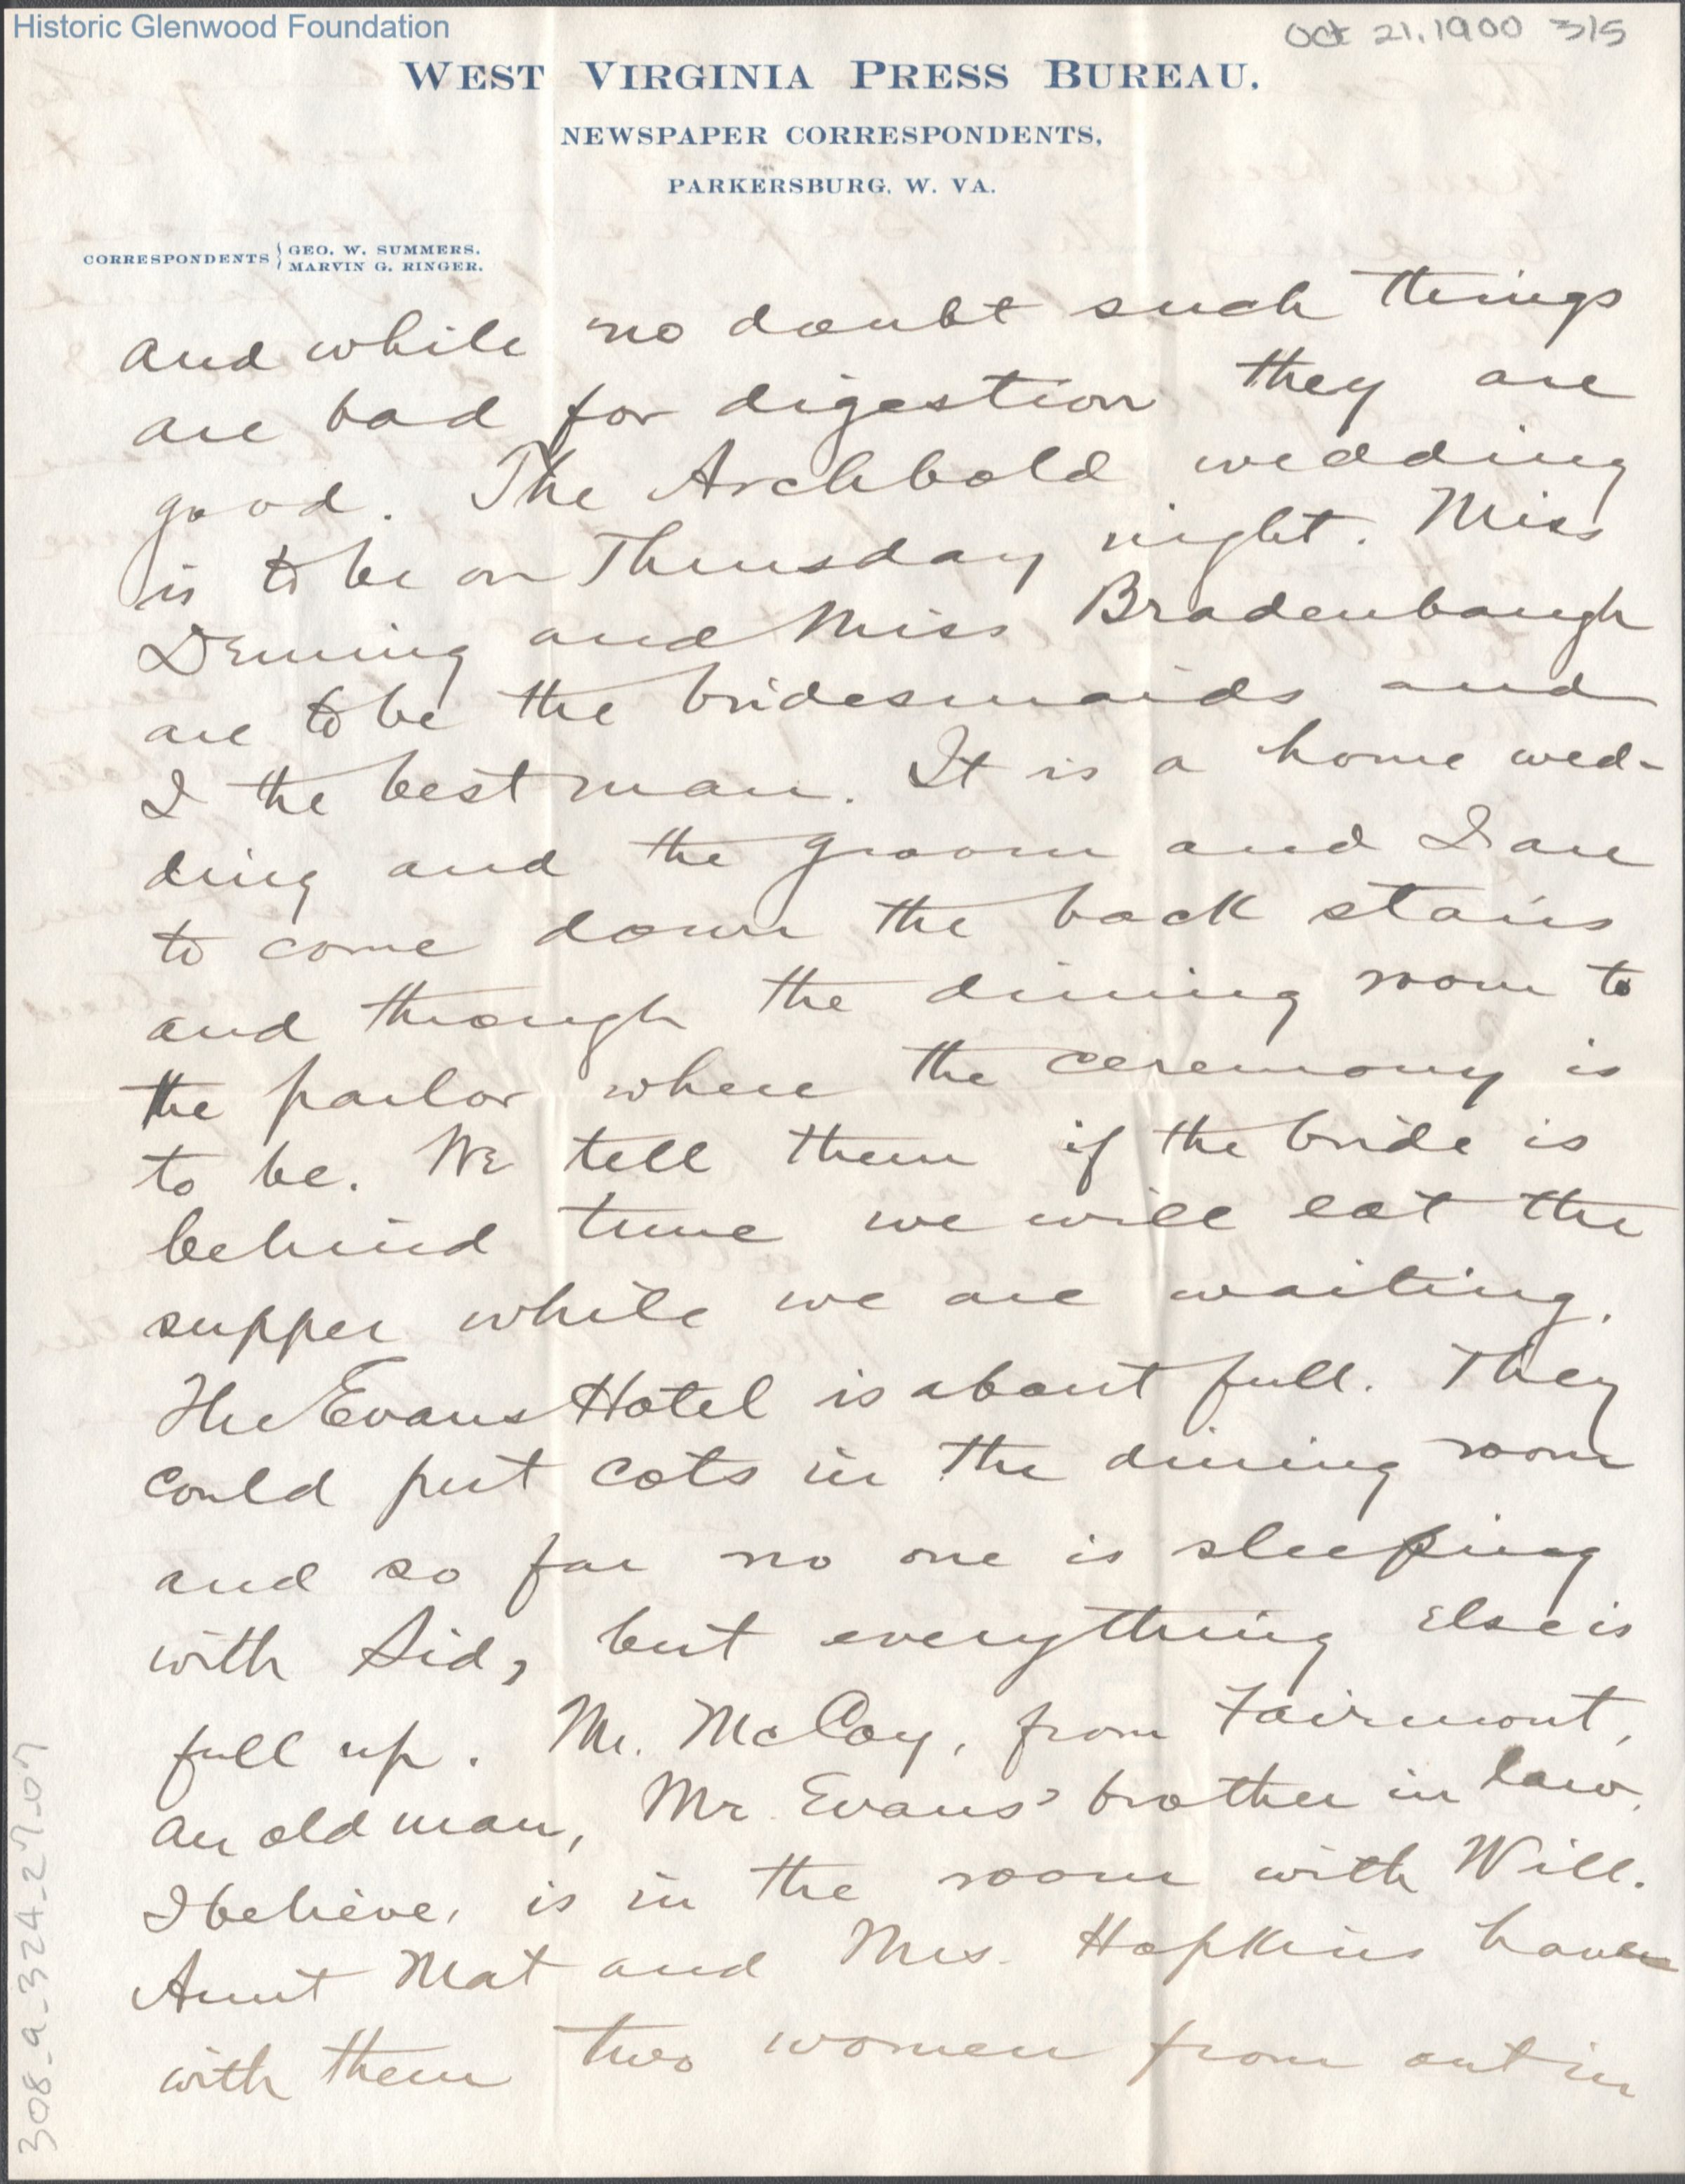 Historic Glenwood Foundation
Oct 21, 1900 3/5
WEST VIRGINIA PRESS BUREAU.
NEWSPAPER CORRESPONDENTS,
PARKERSBURG, W. VA.
CORRESPONDENTS { GEO. W. SUMMERS.
MARVIN G. RINGER.
and while no doubt such things
are bad for digestion they are
good. The Archbold wedding
is to be on Thursday night. Miss
Deming and Miss Bradenbaugh
are to be the bridesmaids and
I the best man. It is a home wed-
ding and the groom and I are
to come down the back stairs
and through the dining room to
the parlor where the ceremony is
to be. We tell them if the bride is
behind time we will eat the
supper while we are waiting.
The Evans Hotel is about full. They
could put cots in the dining room
and so far no one is sleeping
with Sid, but everything else is
full up. Mr. McCoy, from Fairmont,
an old man, Mr. Evans' brother in law,
I believe, is in the room with Will.
Aunt Mat and Mrs. Hopkins have
with them two women from out in
308_a_324_27_07